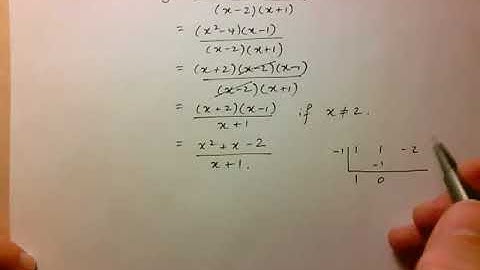 (x-2)(x+1)
= (x²-4)(x-1)
(x-2)(x+1)
= (x+2)(x-2)(x-1)
(x-2)(x+1)
= (x+2)(x-1) if x≠2.
x+1
= x²+x-2
x+1.
-1 | 1 1 -2
-1
1 0